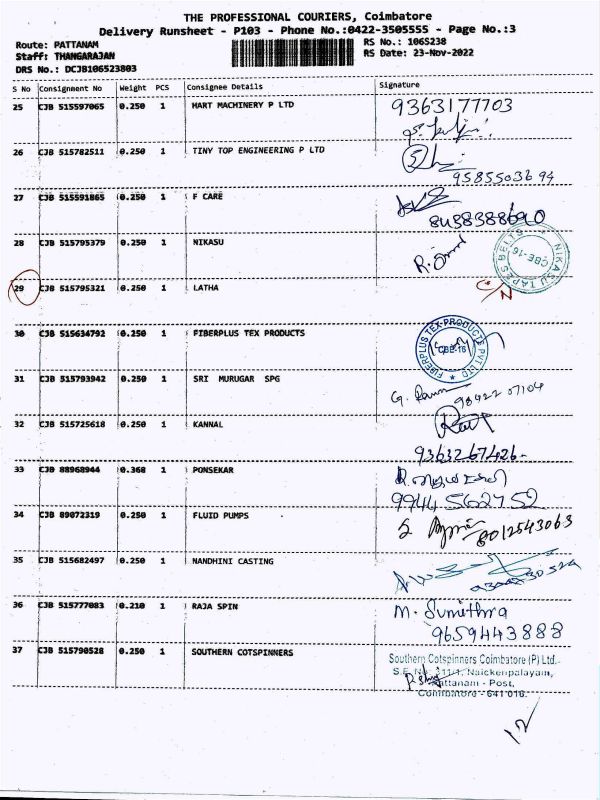 THE PROFESSIONAL COURIERS, Coimbatore
Delivery Runsheet - P103 - Phone No.:0422-3505555 - Page No.:3
Route: PATTANAM
RS No.: 106523B
Staff: THANGARAJAN
RS Date: 23-Nov-2022
DRS No.: DCJB106523803
S No Consignment No Weight PCS Consignee Details Signature
25 CJB 515597065 0.250 1 HART MACHINERY P LTD 9363177703
26 CJB 515782511 0.250 1 TINY TOP ENGINEERING P LTD
9585503694
27 CJB 515591865 0.250 1 F CARE
8438388690
28 CJB 515795379 0.250 1 NIKASU
NIKASU TAPES BELTS
CBE-16
29 CJB 515795321 0.250 1 LATHA C/N
30 CJB 515634792 0.250 1 FIBERPLUS TEX PRODUCTS
FIBERPLUS TEX PRODUCTS PVT LTD
CBE-16
31 CJB 515793942 0.250 1 SRI MURUGAR SPG
98422 07104
32 CJB 515725618 0.250 1 KANNAL
9363267426
33 CJB 88968944 0.368 1 PONSEKAR
9944562752
34 CJB 89072319 0.250 1 FLUID PUMPS
8012543063
35 CJB 515682497 0.250 1 NANDHINI CASTING
36 CJB 515777083 0.210 1 RAJA SPIN M. Sumithra
9659443888
37 CJB 515790528 0.250 1 SOUTHERN COTSPINNERS
Southern Cotspinners Coimbatore (P) Ltd.
S.F. No. 311/1, Naickenpalayam,
Pattanam - Post,
Coimbatore - 641 016.